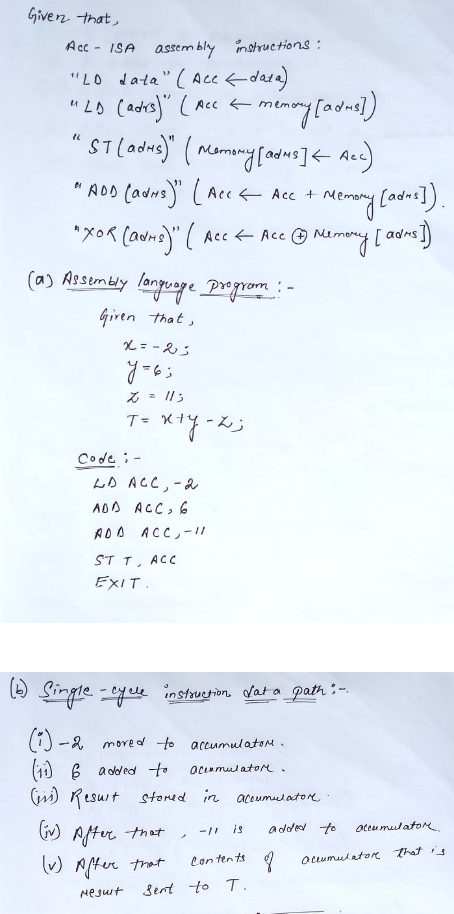 Given that,
Acc - ISA assembly instructions :
"LD data" ( Acc ← data)
"LD (adrs)" ( Acc ← memory[adrs])
"ST(adrs)" ( Memory[adrs] ← Acc)
"ADD (adrs)" ( Acc ← Acc + Memory [adrs]).
"XOR (adrs)" ( Acc ← Acc ⊕ Memory [adrs])
(a) Assembly language program :-
Given that,
x = -2;
y = 6;
z = 11;
T = x+y - z;
Code :-
LD ACC, -2
ADD ACC, 6
ADD ACC, -11
ST T, ACC
EXIT.
(b) Single-cycle instruction data path :-
(i) -2 moved to accumulator.
(ii) 6 added to accumulator.
(iii) Result stored in accumulator.
(iv) After that, -11 is added to accumulator.
(v) After that contents of accumulator that is
result sent to T.